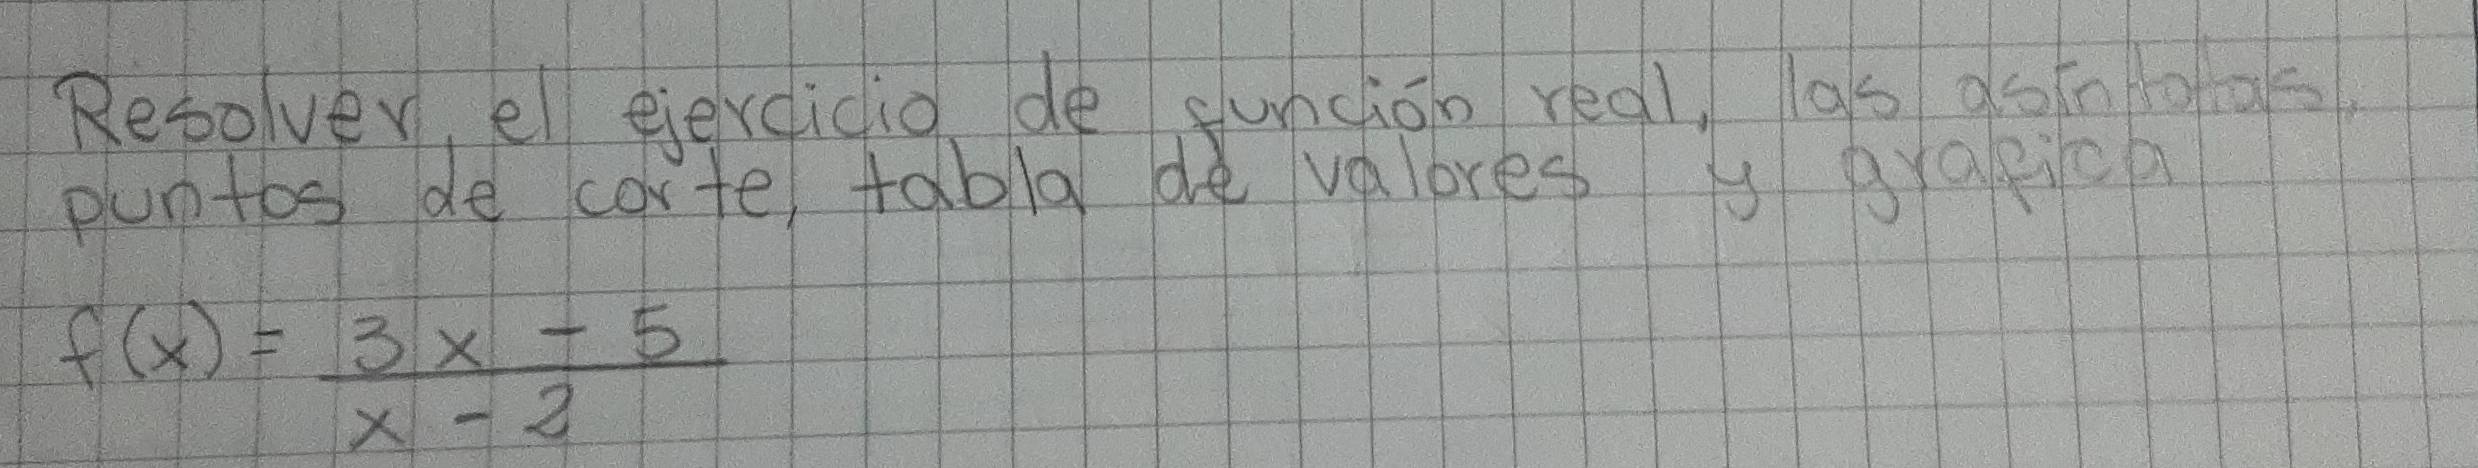 Resolver el ejercicio de función real, las asíntotas,
puntos de corte, tabla de valores y grafica
f(x) = 3x - 5
x - 2